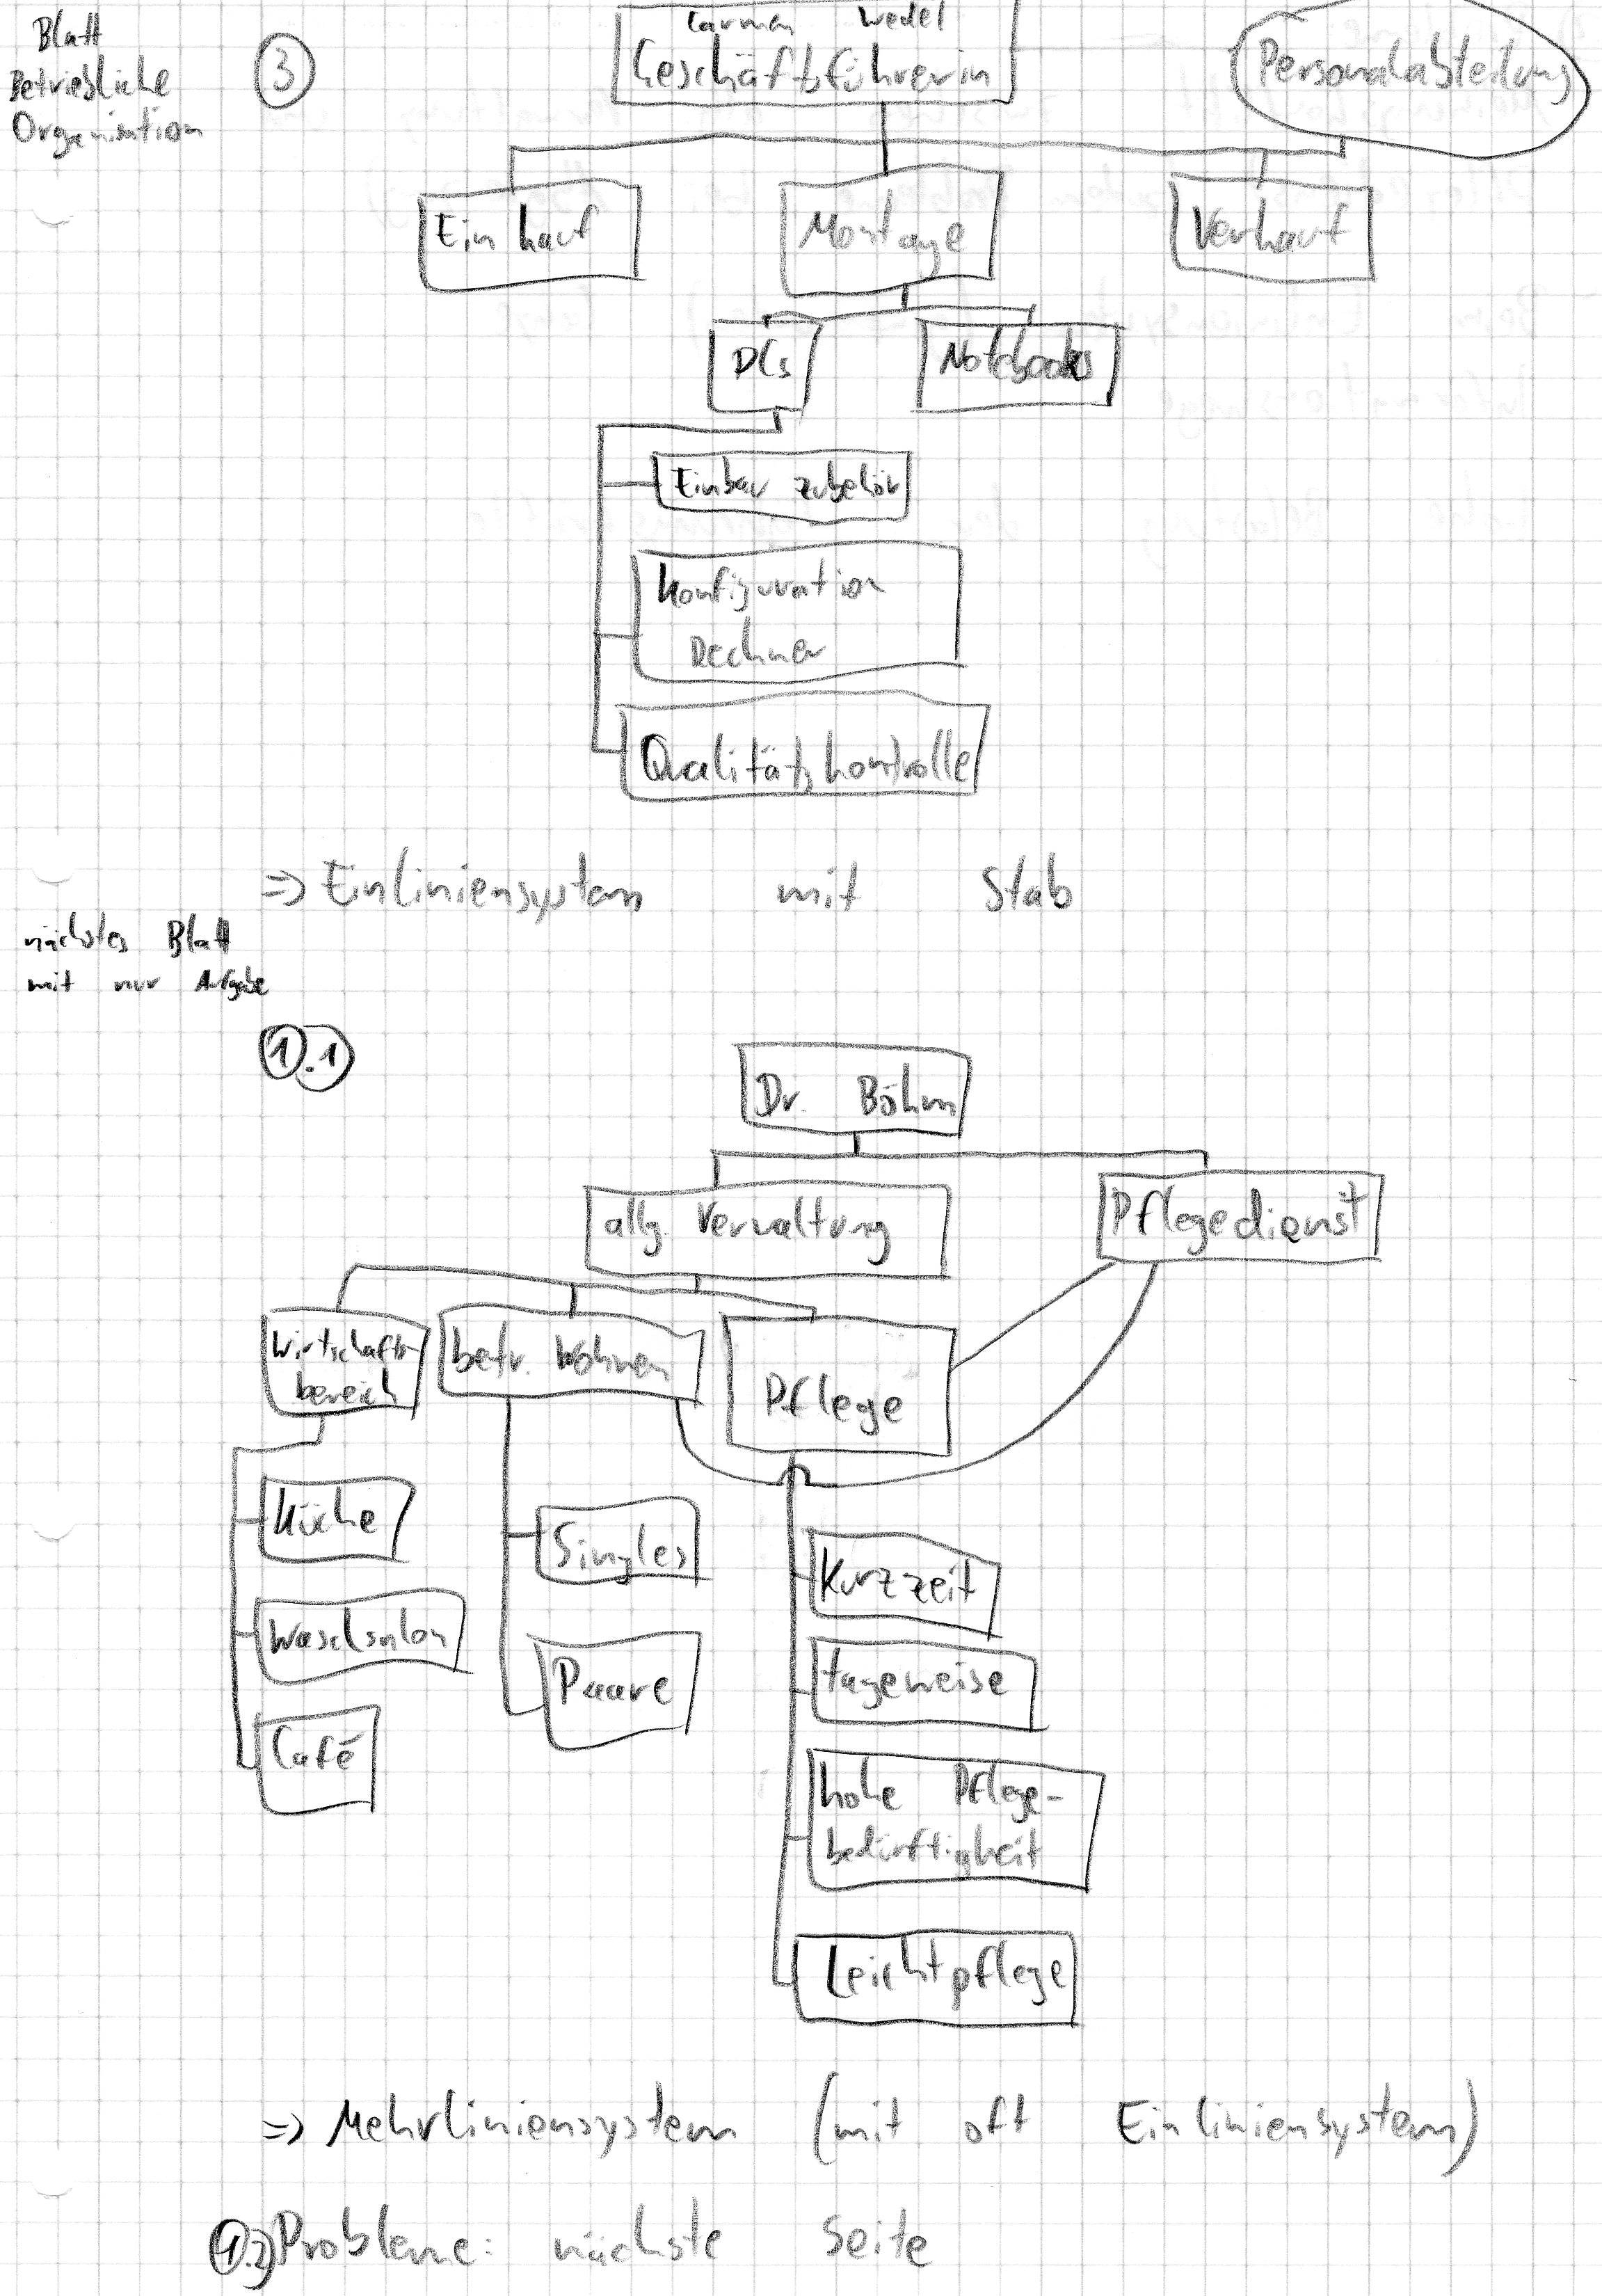 Blatt
Betriebliche
Organisation
③
Carmen Wedel
Geschäftsführerin
Personalabteilung
Einkauf
Montage
Verkauf
PCs
Notebooks
Einbau Zubehör
Konfiguration
Rechner
Qualitätskontrolle
=> Einliniensystem mit Stab
nächstes Blatt
mit nur Aufgabe
1.1
Dr. Böhm
allg. Verwaltung
Pflegedienst
Wirtschafts-
bereich
betr. Wohnen
Pflege
Küche
Waschsalon
Café
Singles
Paare
Kurzzeit
tageweise
hohe Pflege-
bedürftigkeit
Leichtpflege
=> Mehrliniensystem (mit oft Einliniensystem)
1.2) Probleme: nächste Seite